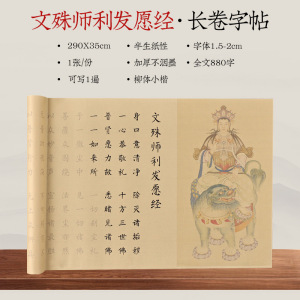 文殊师利发愿经·长卷字帖
•290X35cm •半生纸性 •字体1.5-2cm
•1张/份 •加厚不洇墨 •全文880字
•可写1遍 •柳体小楷
文殊师利发愿经
身口意清净 除灭诸垢秽
一心恭敬礼 十方三世佛
普贤愿力故 悉睹见诸佛
一一如来所